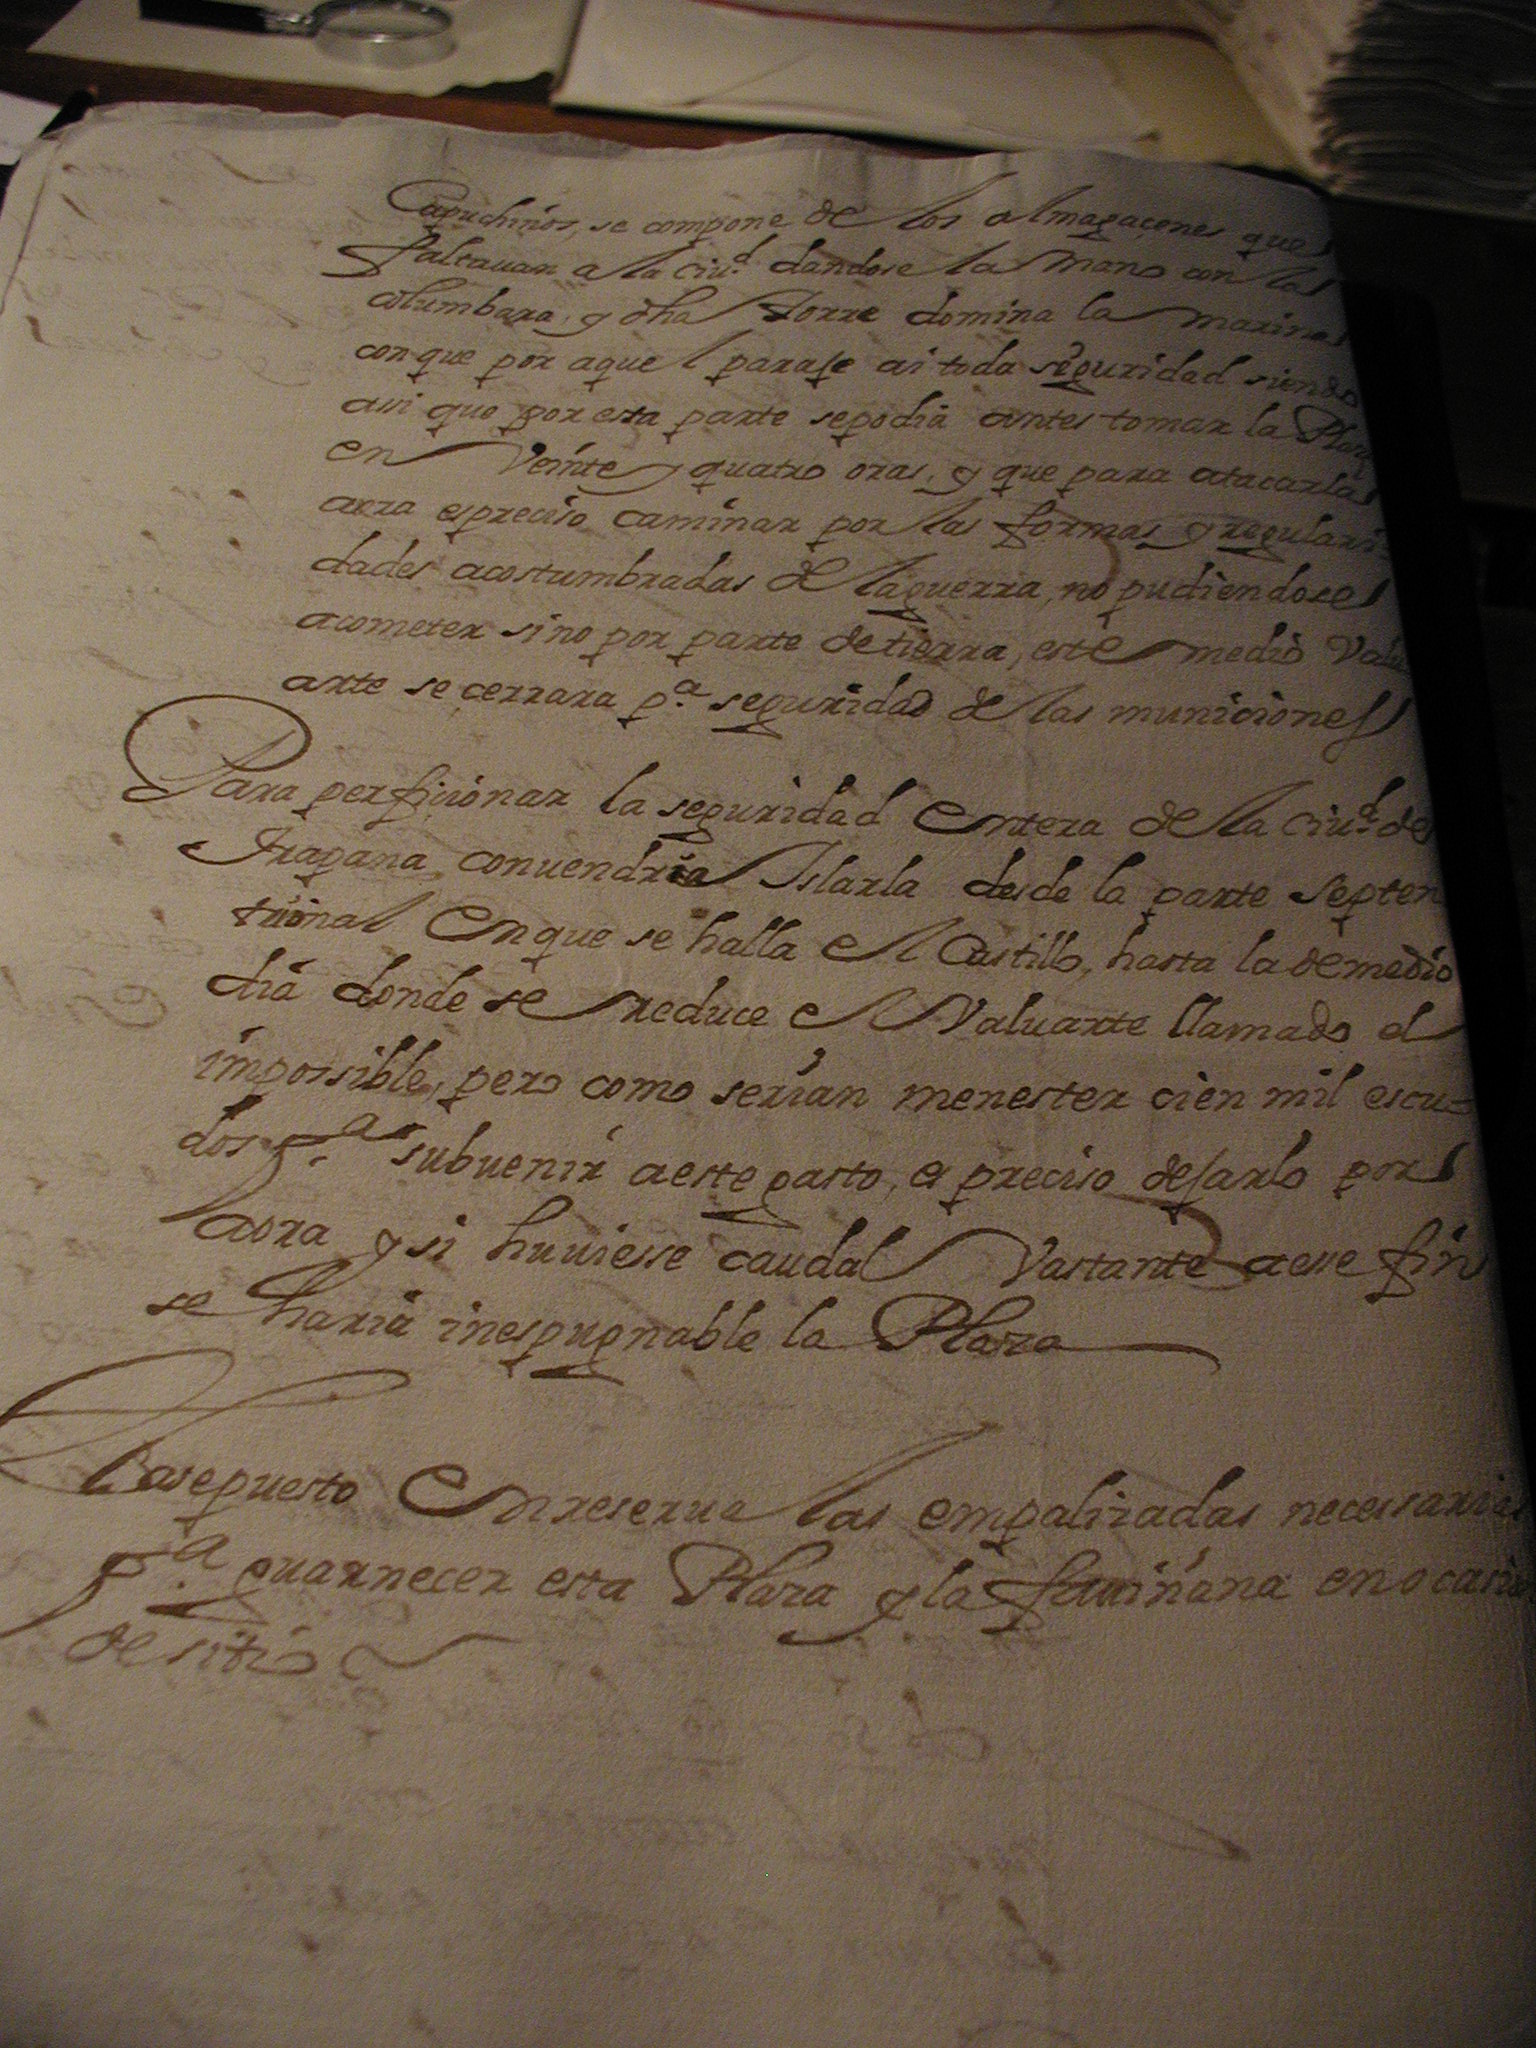 Capuchinos, se compone de los almagacenes que
faltauan a la ciu.d dandose la mano con la
columbara, y dha torre domina la marina
conque por aquel paraje ai toda seguridad siendo
asi que por esta parte se podia antes tomar la Plaza
en Veinte y quatro oras, y que para atacarla
aora espreciso caminar por las formas y regulari-
dades acostumbradas de la guerra, no pudiendose
acometer sino por parte de tierra, este medio Valu
arte se cerrara p.a seguridad de las municiones
Para perficionar la seguridad entera de la ciu.d de
Trapana, conuendria Islarla desde la parte septen
trional en que se halla el Castillo, hasta la de medio
dia donde se reduce el Valuarte llamado el
impossible, pero como serian menester cien mil escu-
dos p.a subuenir a este gasto, es preciso dejarlo por
aora y si huuiesse caudal Vastante a esse fin
se haria inespugnable la Plaza
Hase puesto en reserua las empalizadas necessarias
p.a guarnecer esta Plaza y la fauiñana en ocasio
de sitio